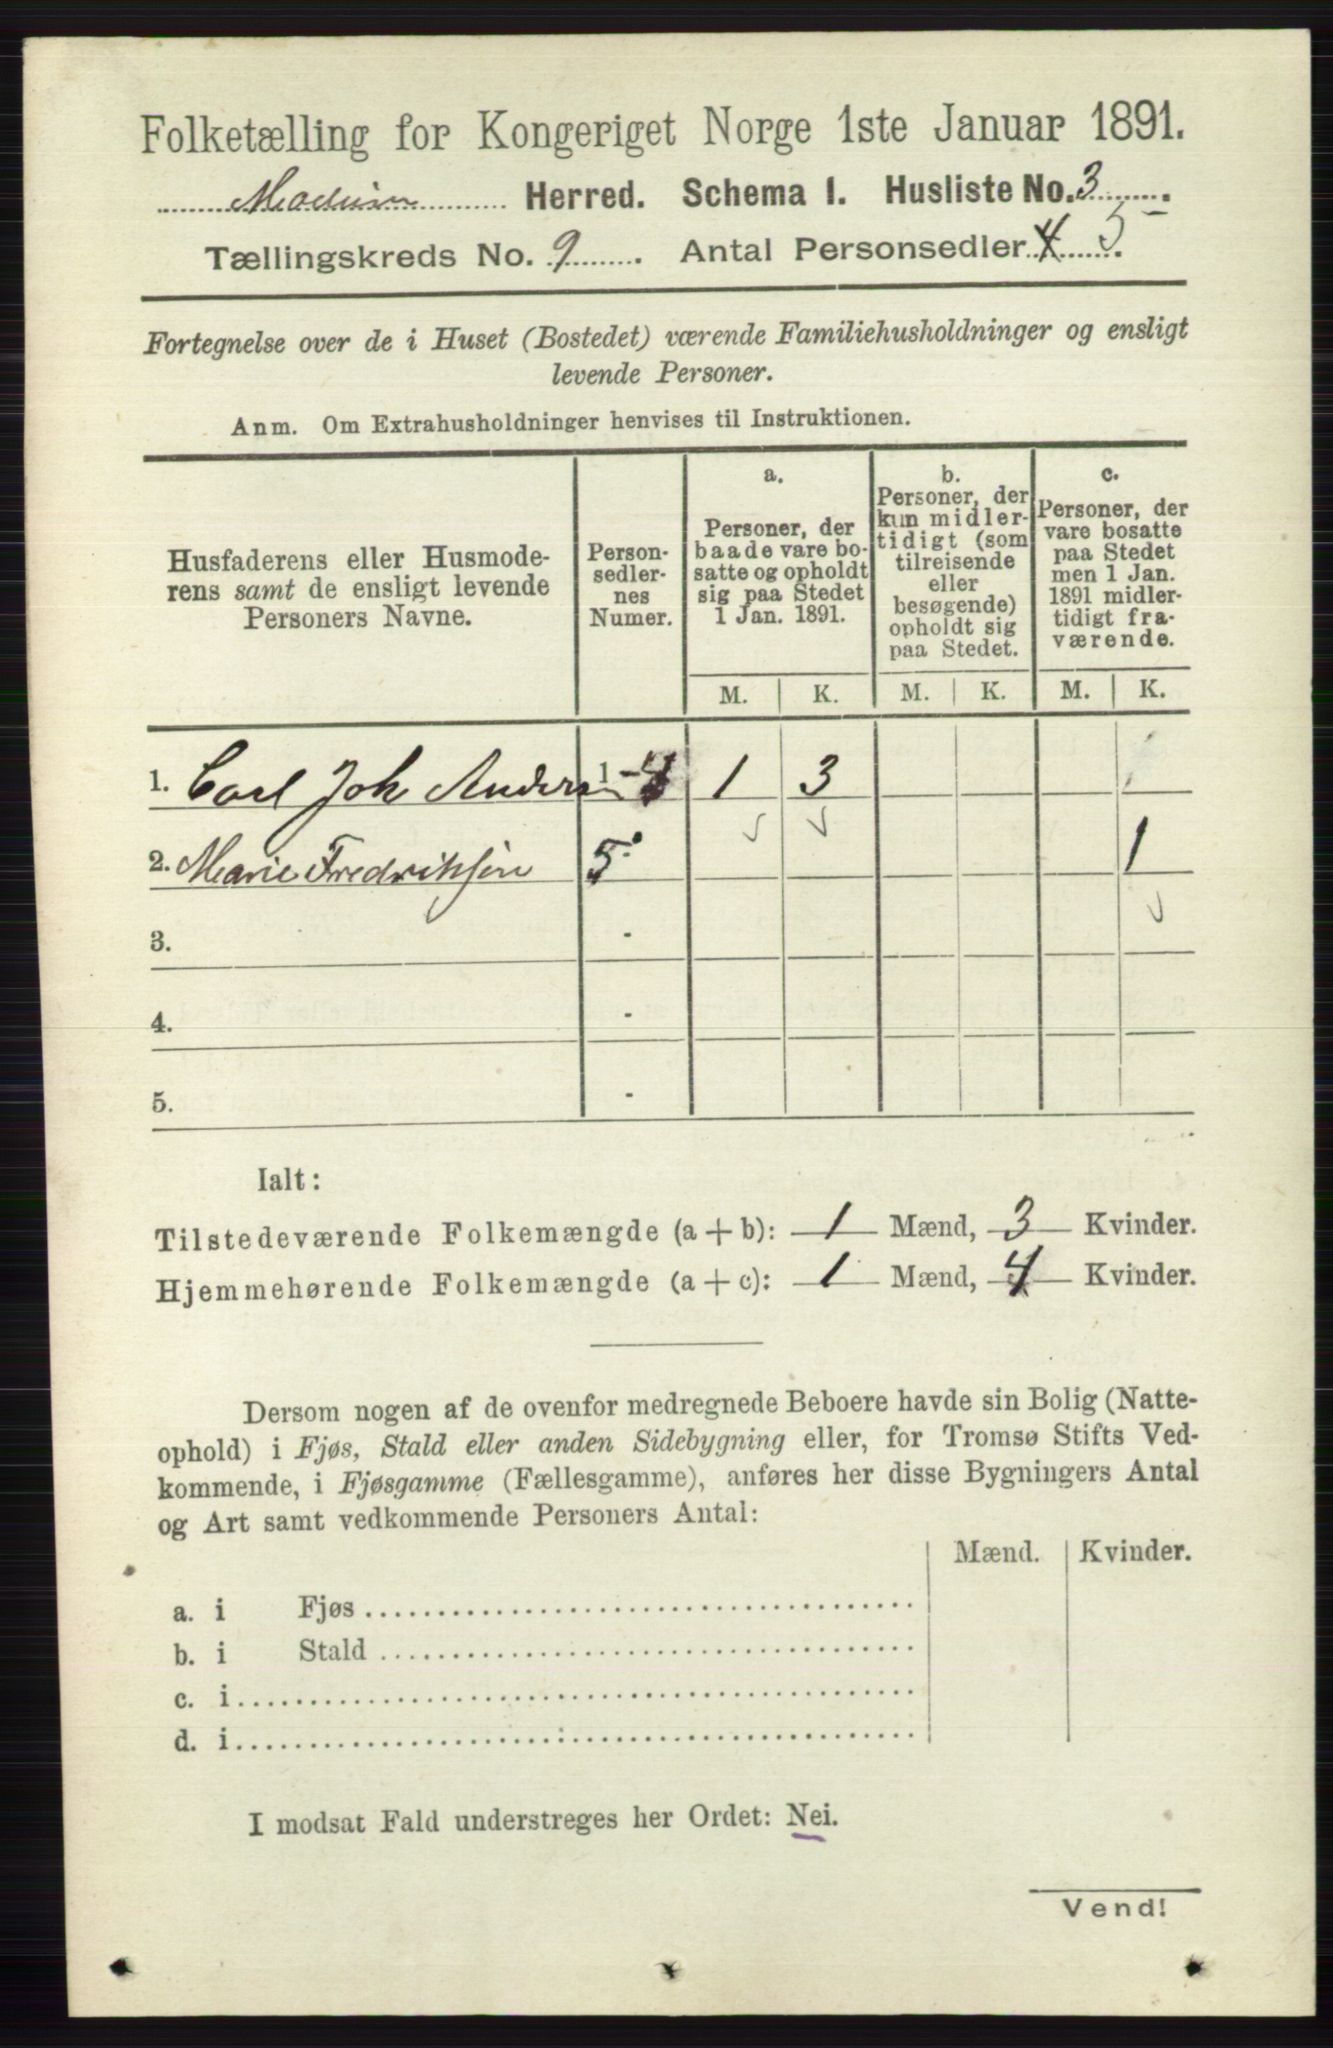 Folketælling for Kongeriget Norge 1ste Januar 1891.
Modum Herred. Schema 1. Husliste No. 3.
Tællingskreds No. 9. Antal Personsedler 4 5.
Fortegnelse over de i Huset (Bostedet) værende Familiehusholdninger og ensligt
levende Personer.
Anm. Om Extrahusholdninger henvises til Instruktionen.
Husfaderens eller Husmode-
rens samt de ensligt levende
Personers Navne.
Person-
sedler-
nes
Numer.
a.
Personer, der
baade vare bo-
satte og opholdt
sig paa Stedet
1 Jan. 1891.
b.
Personer, der
kun midler-
tidigt (som
tilreisende
eller
besøgende)
opholdt sig
paa Stedet.
c.
Personer, der
vare bosatte
paa Stedet
men 1 Jan.
1891 midler-
tidigt fra-
værende.
M. K. M. K. M. K.
1. Carl Joh Anders 1-4 1 3
2. Marie Fredriksen 5 1
3. -
4. -
5. -
Ialt:
Tilstedeværende Folkemængde (a + b): 1 Mænd, 3 Kvinder.
Hjemmehørende Folkemængde (a + c): 1 Mænd, 4 Kvinder.
Dersom nogen af de ovenfor medregnede Beboere havde sin Bolig (Natte-
ophold) i Fjøs, Stald eller anden Sidebygning eller, for Tromsø Stifts Ved-
kommende, i Fjøsgamme (Fællesgamme), anføres her disse Bygningers Antal
og Art samt vedkommende Personers Antal:
Mænd. Kvinder.
a. i Fjøs
b. i Stald
c. i
d. i
I modsat Fald understreges her Ordet: Nei.
Vend!